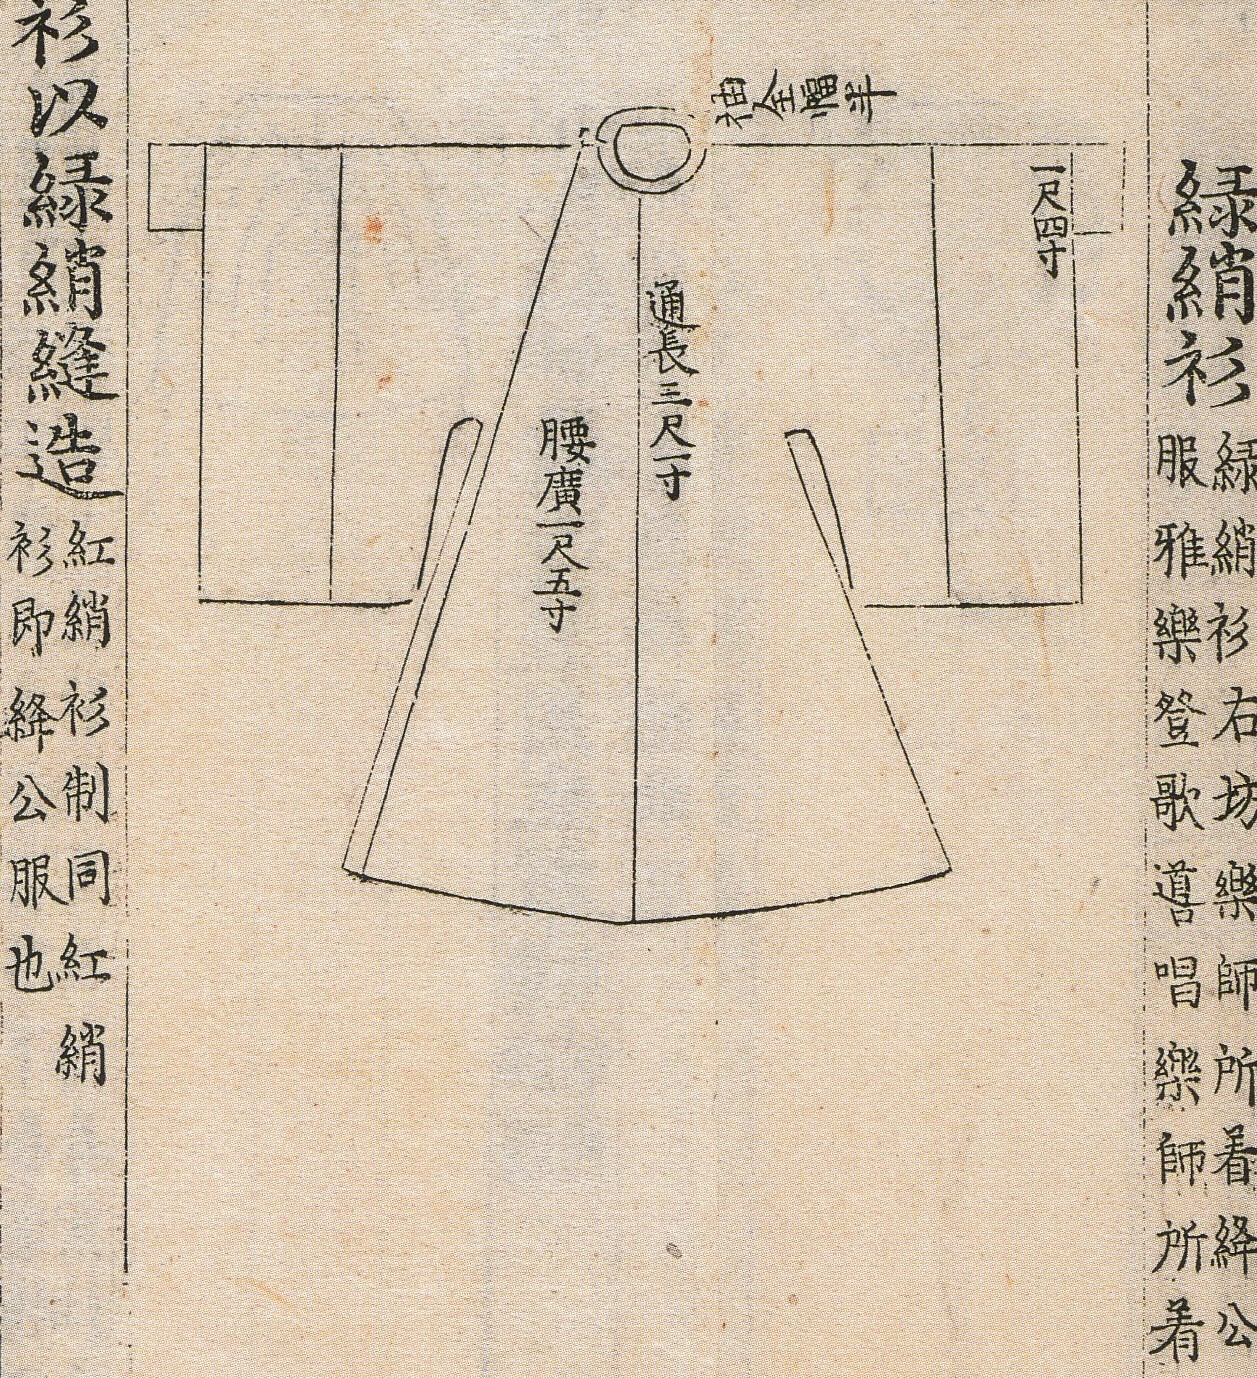 綠綃衫
綠綃衫右坊樂師所着絳公
服雅樂登歌導唱樂師所着
袖全幅半
一尺四寸
通長三尺一寸
腰廣一尺五寸
衫以綠綃縫造
紅綃衫制同紅綃
衫即絳公服也